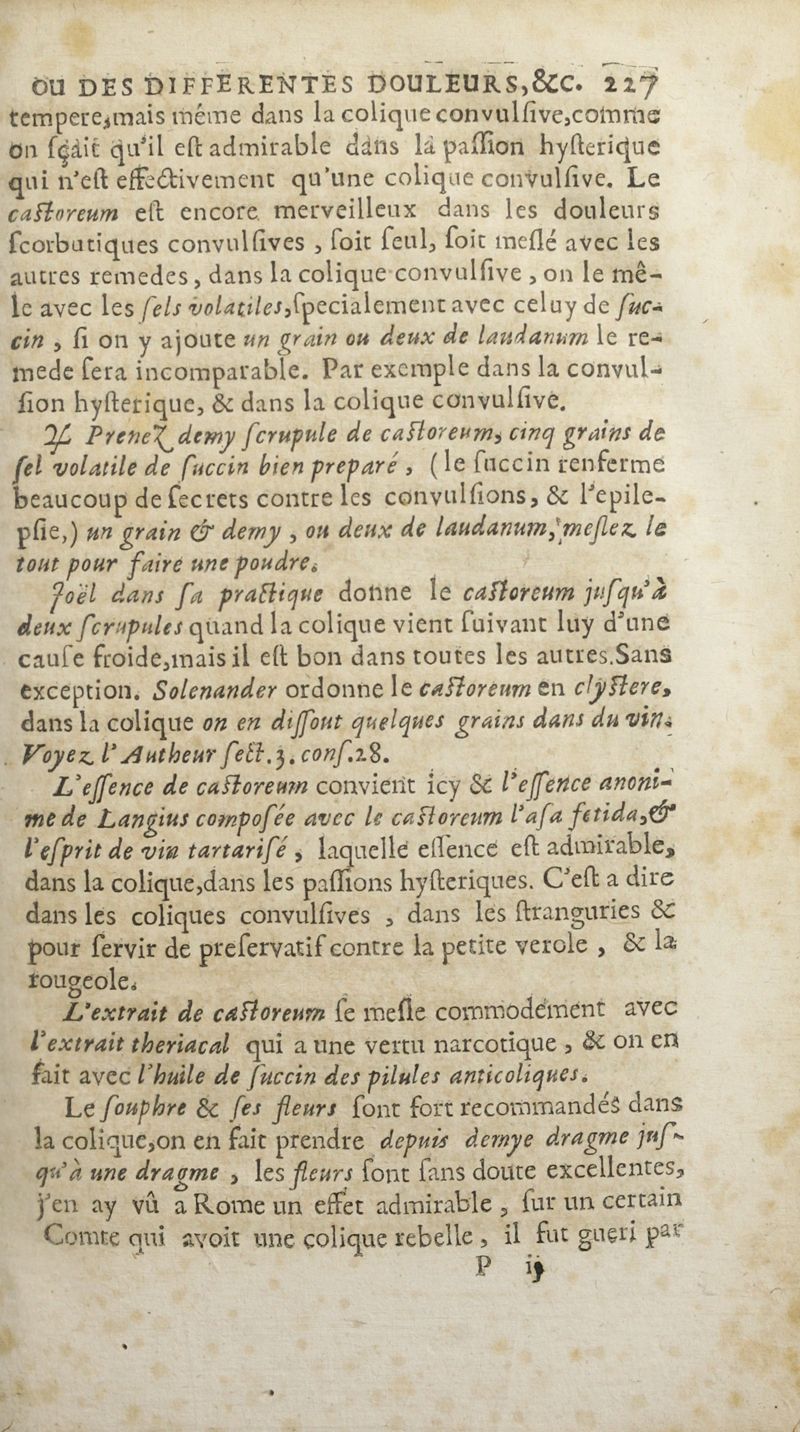 OU DES DIFFERENTES DOULEURS,&C. 227
tempere,mais méme dans la colique convulſive,comme
on ſçait qu'il eſt admirable dans la paſſion hyſterique
qui n'eſt effectivement qu'une colique convulſive. Le
caſtoreum eſt encore merveilleux dans les douleurs
ſcorbutiques convulſives , ſoit ſeul, ſoit meſlé avec les
autres remedes , dans la colique convulſive , on le mê-
le avec les ſels volatiles,ſpecialement avec celuy de ſuc-
cin , ſi on y ajoute un grain ou deux de laudanum le re-
mede ſera incomparable. Par exemple dans la convul-
ſion hyſterique, & dans la colique convulſive.
♃ Prenez demy ſcrupule de caſtoreum, cinq grains de
ſel volatile de ſuccin bien preparé , (le ſuccin renferme
beaucoup de ſecrets contre les convulſions, & l'epile-
pſie,) un grain & demy , ou deux de laudanum, meſlez le
tout pour faire une poudre.
Joël dans ſa practique donne le caſtoreum juſqu'à
deux ſcrupules quand la colique vient ſuivant luy d'une
cauſe froide,mais il eſt bon dans toutes les autres.Sans
exception. Solenander ordonne le caſtoreum en clyſtere,
dans la colique on en diſſout quelques grains dans du vin.
Voyez l'Autheur ſect.3. conſ.28.
L'eſſence de caſtoreum convient icy & l'eſſence anoni-
me de Langius compoſée avec le caſtoreum l'aſa fetida,&
l'eſprit de vin tartariſé , laquelle eſſence eſt admirable,
dans la colique,dans les paſſions hyſteriques. C'eſt a dire
dans les coliques convulſives , dans les ſtranguries &
pour ſervir de preſervatif contre la petite verole , & la
rougeole.
L'extrait de caſtoreum ſe meſle commodément avec
l'extrait theriacal qui a une vertu narcotique , & on en
fait avec l'huile de ſuccin des pilules anticoliques.
Le ſouphre & ſes fleurs ſont fort recommandés dans
la colique,on en fait prendre depuis demye dragme juſ-
qu'à une dragme , les fleurs ſont ſans doute excellentes,
j'en ay vû a Rome un effet admirable , ſur un certain
Comte qui avoit une colique rebelle , il fut gueri par
P ij